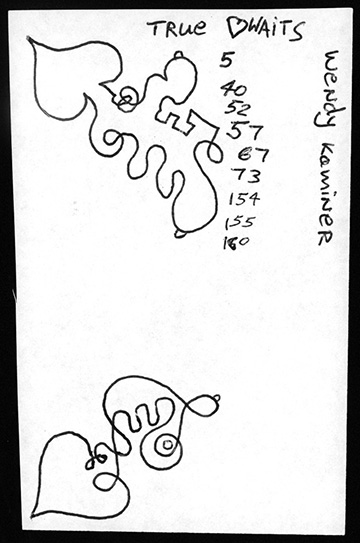 TRUE ♡WAITS
5
40
52
57
67
73
154
155
160
Wendy Kaminer